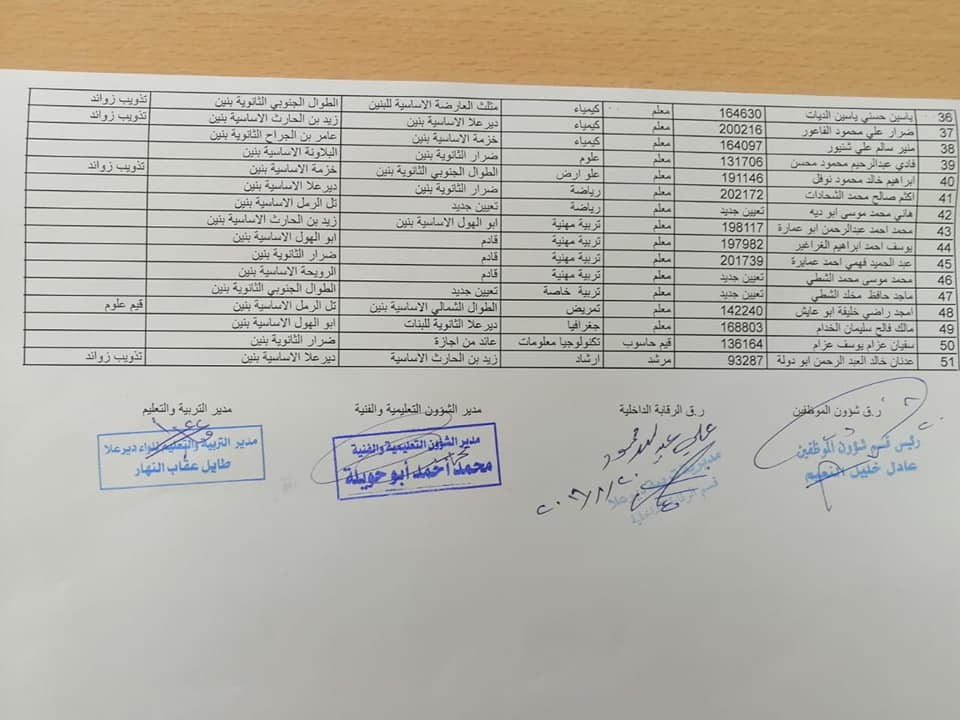 36 ياسين حسني ياسين الديات 164630 معلم كيمياء مثلث العارضة الاساسية للبنين الطوال الجنوبي الثانوية بنين تذويب زوائد
37 ضرار علي محمود الفاعور 200216 معلم كيمياء ديرعلا الاساسية بنين زيد بن الحارث الاساسية بنين تذويب زوائد
38 منير سالم علي شتيور 164097 معلم كيمياء خزمة الاساسية بنين عامر بن الجراح الثانوية بنين
39 فادي عبدالرحيم محمود محسن 131706 معلم علوم ضرار الثانوية بنين البلاونة الاساسية بنين
40 ابراهيم خالد محمود نوفل 191146 معلم علو ارض الطوال الجنوبي الثانوية بنين خزمة الاساسية بنين تذويب زوائد
41 اكثم صالح محمد الشحادات 202172 معلم رياضة ضرار الثانوية بنين ديرعلا الاساسية بنين
42 هاني محمد موسى ابو ديه تعيين جديد معلم رياضة تعيين جديد تل الرمل الاساسية بنين
43 محمد احمد عبدالرحمن ابو عمارة 198117 معلم تربية مهنية ابو الهول الاساسية بنين زيد بن الحارث الاساسية بنين
44 يوسف احمد ابراهيم الغراغير 197982 معلم تربية مهنية قادم ابو الهول الاساسية بنين
45 عبد الحميد فهمي احمد عمايرة 201739 معلم تربية مهنية قادم ضرار الثانوية بنين
46 محمد موسى محمد الشطي تعيين جديد معلم تربية مهنية قادم الرويحة الاساسية بنين
47 ماجد حافظ مخلد الشطي تعيين جديد معلم تربية خاصة تعيين جديد الطوال الجنوبي الثانوية بنين
48 امجد راضي خليفة ابو عايش 142240 معلم تمريض الطوال الشمالي الاساسية بنين تل الرمل الاساسية بنين قيم علوم
49 مالك فالح سليمان الخدام 168803 معلم جغرافيا ديرعلا الثانوية للبنات ابو الهول الاساسية بنين
50 سفيان عزام يوسف عزام 136164 قيم حاسوب تكنولوجيا معلومات عائد من اجازة ضرار الثانوية بنين
51 عدنان خالد العبد الرحمن ابو دولة 93287 مرشد ارشاد زيد بن الحارث الاساسية ديرعلا الاساسية بنين تذويب زوائد
ر.ق شؤون الموظفين ر.ق الرقابة الداخلية مدير الشؤون التعليمية والفنية مدير التربية والتعليم
رئيس قسم شؤون الموظفين
عادل خليل النعيم
قسم الرقابة الداخلية
مدير الشؤون التعليمية والفنية
محمد احمد ابو حويلة
مدير التربية والتعليم للواء ديرعلا
طايل عقاب النهار